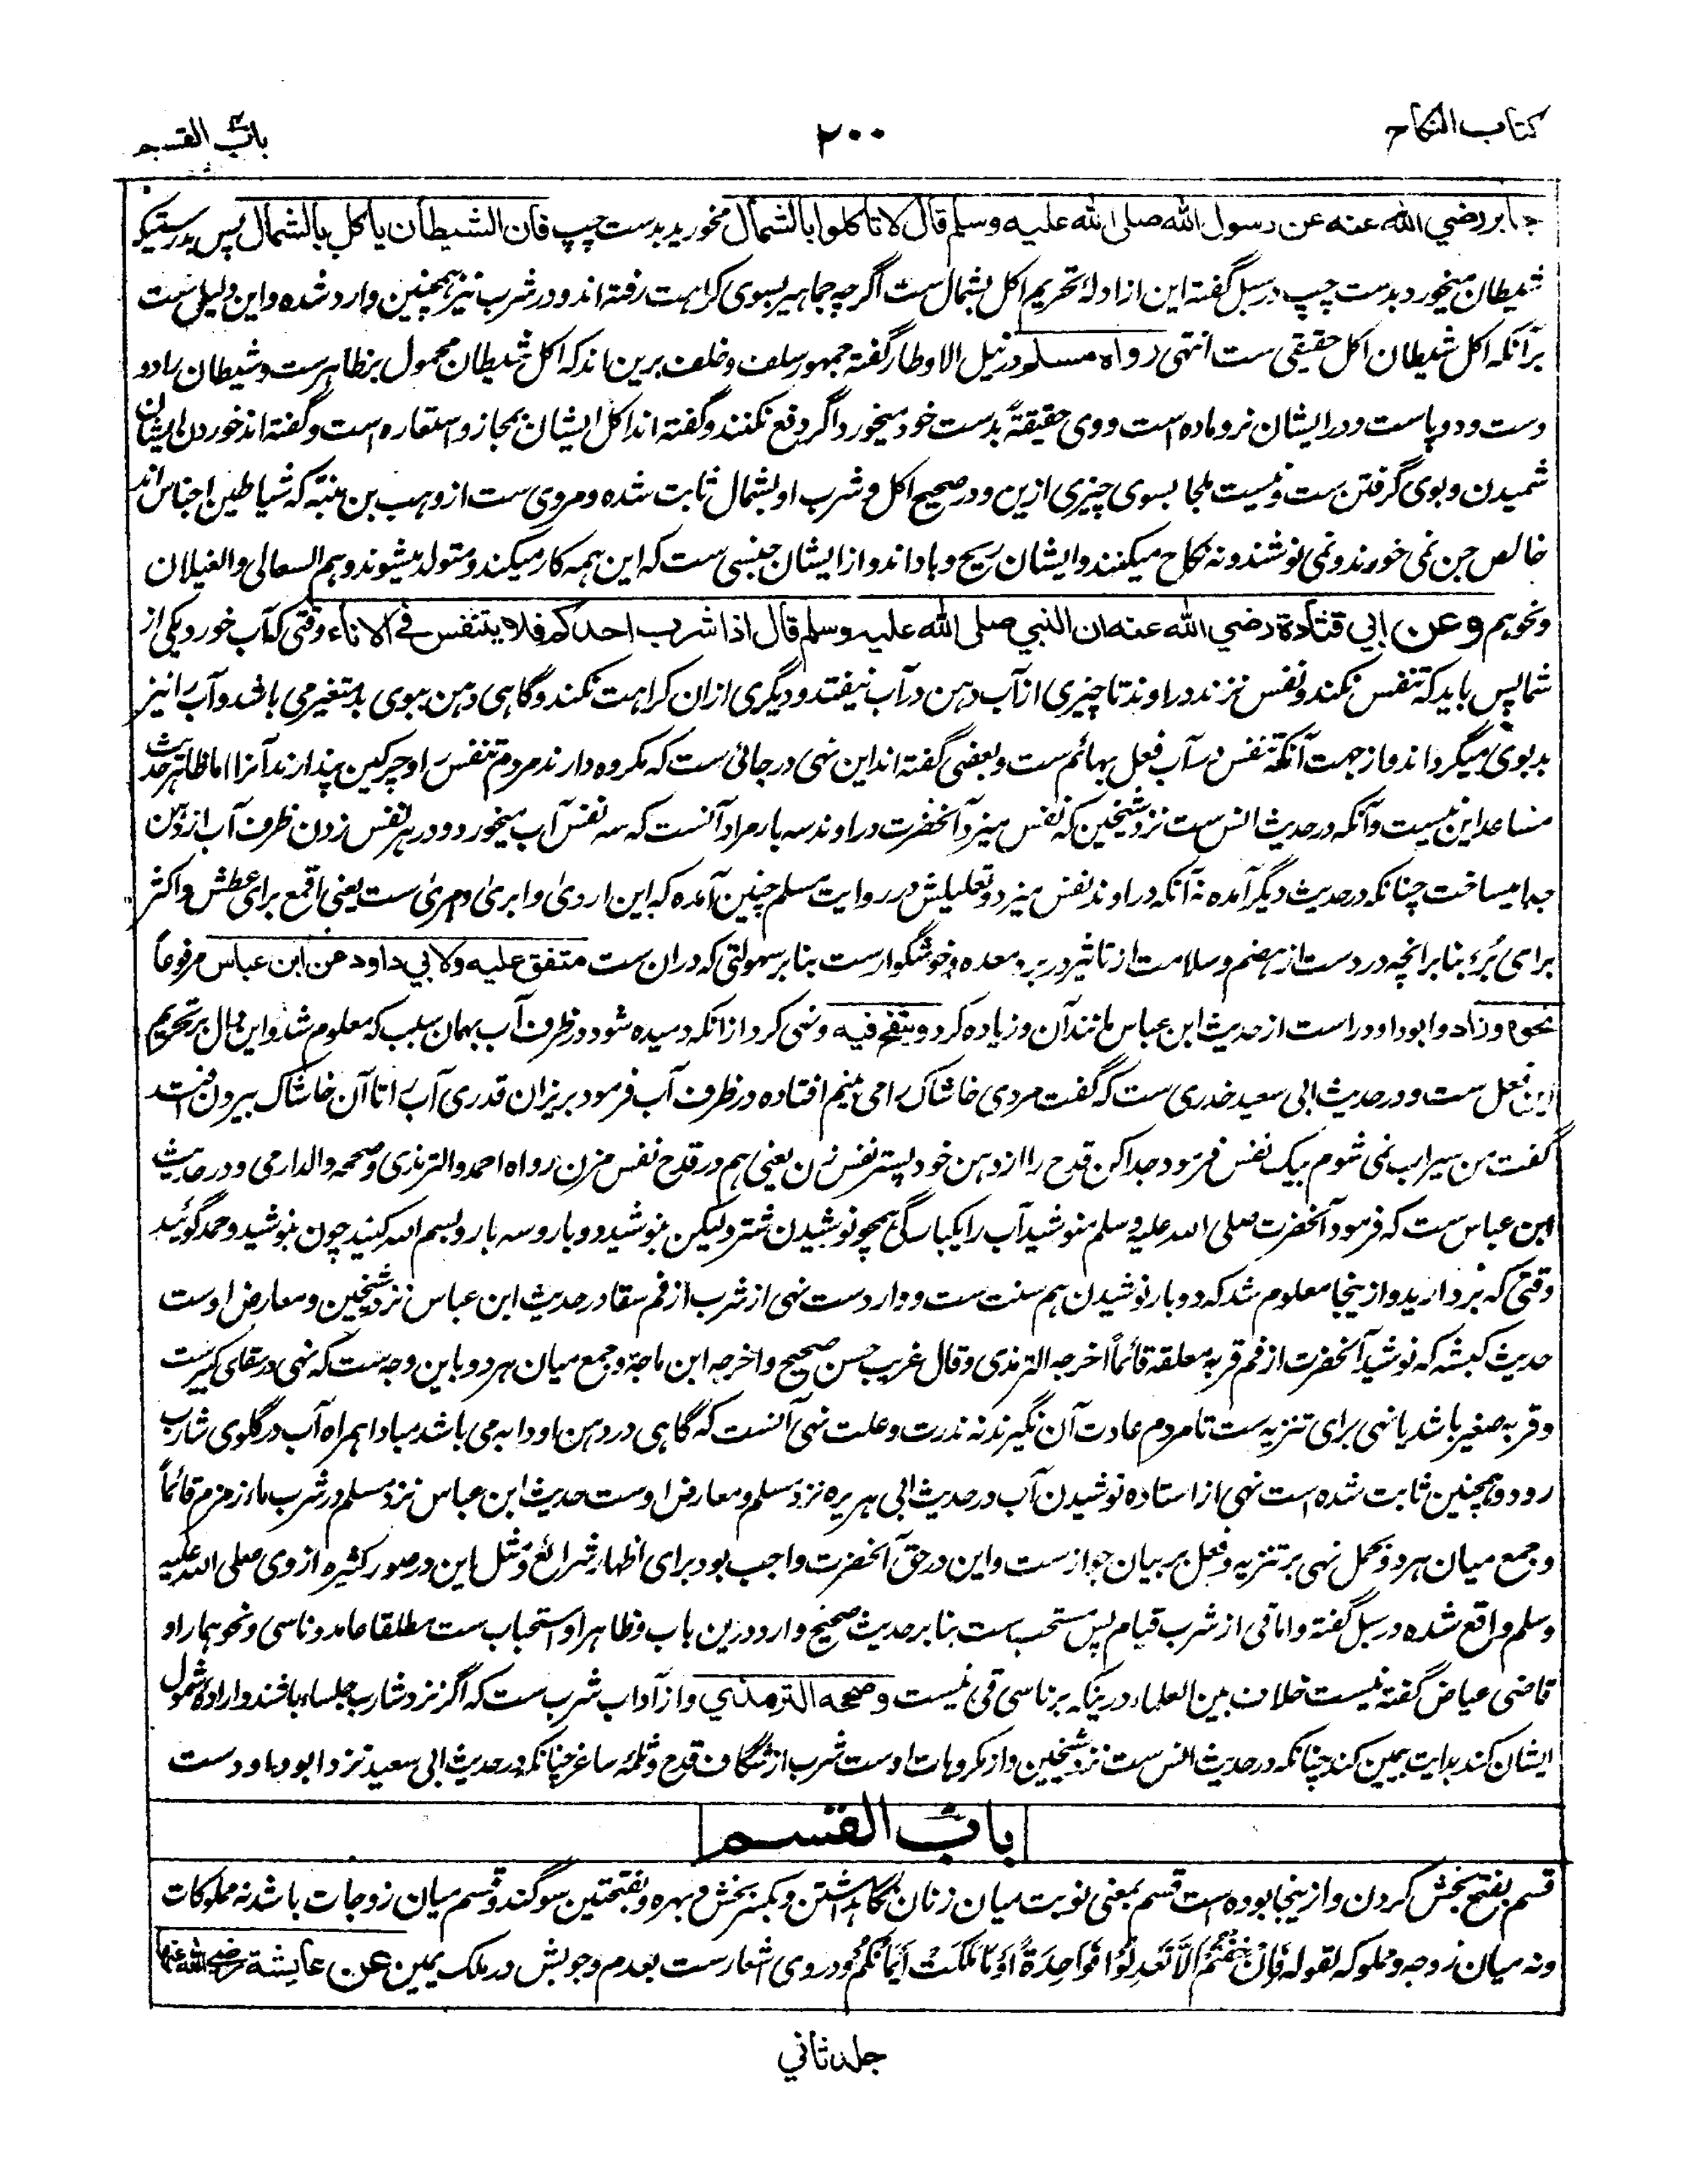 كتاب النكاح
٢٠٠
باب القسم
جابر رضي الله عنه عن رسول الله صلى الله عليه وسلم قال لا تأكلوا بالشمال مخورید بدست چپ فان الشيطان يأكل بالشمال پس بدرستیکه
شیطان میخورد بدست چپ در سبل گفته این از ادلهٔ تحریم اکل بشمال ست اگرچه جماهیر بسوی کراهت رفته اند و در شرب نیز همچنین وارد شده و این دلیلی ست
برآنکه اکل شیطان اکل حقیقی ست انتهی رواه مسلم و در نیل الاوطار گفته جمهور سلف و خلف برین اند که اکل شیطان محمول بر ظاهرست و شیطان را دو
دست و دو پاست و در ایشان نر و ماده است و وی حقیقةً بدست خود میخورد اگر دفع نکنند و گفته اند اکل ایشان مجاز و استعاره است و گفته اند خوردن ایشان
شمیدن و بوی گرفتن ست و نیست ملجا بسوی چیزی ازین و در صحیح اکل و شرب او بشمال ثابت شده و مروی ست از وهب بن منبه که شیاطین اجناس اند
خالص جن نمی خورند و نمی نوشند و نه نکاح میکنند و ایشان ریح و باد اند و از ایشان جنسی ست که این همه کار میکند و متولد میشوند و هم السعالی والغیلان
ونحوهم وعن ابي قتادة رضي الله عنه ان النبي صلى الله عليه وسلم قال اذا شرب احدكم فلا يتنفس في الاناء وقتی که آب خورد یکی از
شما پس باید که تنفس نکند و نفس نزند در آوند تا چیزی از آب دهن در آب نیفتد و دیگری ازان کراهت نکند و گاهی دهن ببوی بد متغیر می باشد و آب را نیز
بدبوی میگرداند و از جهت آنکه تنفس در آب فعل بهائم ست و بعضی گفته اند این نهی در جائی ست که مکروه دارند مردم تنفس را و چرکین پندارند آنرا اما ظاهر حدیث
مساعد این نیست و آنکه در حدیث انس ست نزد شیخین که نفس میزد آنحضرت در آوند سه بار مراد آنست که سه نفس آب میخورد و در هر نفس زدن ظرف آب از دهن
جدا میساخت چنانکه در حدیث دیگر آمده نه آنکه در آوند نفس میزد و تعلیلش در روایت مسلم چنین آمده که این اروی و ابری و امری ست یعنی اقمع برای عطش و اکثر
برای بُرء بنابر انچه در دست از هضم و سلامت از تاثیر در برد معده و خوشگوارست بنابر سهولتی که دران ست متفق عليه ولابي داود عن ابن عباس مرفوعاً
نحوه وزاد و ابوداود راست از حدیث ابن عباس مانند آن و زیاده کرد وينفخ فيه ونهی کرد از آنکه دمیده شود در ظرف آب بهمان سبب که معلوم شد و این دال بر تحریم
این فعل ست و در حدیث ابی سعید خدری ست که گفت مردی خاشاک را می بینم افتاده در ظرف آب فرمود بریز آن قدری آب را تا آن خاشاک بیرون افتد
گفت من سیراب نمی شوم بیک نفس فرمود جدا کن قدح را از دهن خود پستر نفس زن یعنی هم در قدح نفس مزن رواه احمد والترمذی وصححه والدارمی و در حدیث
ابن عباس ست که فرمود آنحضرت صلی الله علیه وسلم منوشید آب را یکبارگی همچو نوشیدن شتر ولیکن بنوشید دو بار و سه بار و بسم الله کنید چون بنوشید و حمد گوئید
وقتی که بردارید و ازینجا معلوم شد که دو بار نوشیدن هم سنت ست و وارد ست نهی از شرب از فم سقا در حدیث ابن عباس نزد شیخین و معارض اوست
حدیث کبشه که نوشید آنحضرت از فم قربه معلقه قائماً اخرجه الترمذی وقال غریب حسن صحیح و اخرجه ابن ماجة و جمع میان هر دو باین وجه ست که نهی در سقای کبیرست
و قربه صغیر باشد یا نهی برای تنزیه ست تا مردم عادت آن نگیرند نه ندرت و علت نهی آنست که گاهی در دهن او دابه می باشد مبادا همراه آب در گلوی شارب
رود و همچنین ثابت شده است نهی از استاده نوشیدن آب در حدیث ابی هریره نزد مسلم و معارض اوست حدیث ابن عباس نزد مسلم در شرب ماء زمزم قائماً
و جمع میان هر دو بحمل نهی بر تنزیه و فعل بر بیان جوازست و این در حق آنحضرت واجب بود برای اظهار شرائع و مثل این در صور کثیره از وی صلی الله علیه
وسلم واقع شده در سبل گفته و اما قی از شرب قیام پس مستحب ست بنابر حدیث صحیح وارد درین باب و ظاهر او استحباب ست مطلقا عامد و ناسی و نحوهما را و
قاضی عیاض گفته نیست خلاف بین العلماء درینکه بر ناسی قی نیست وصححه الترمذي و از آداب شرب ست که اگر نزد شارب جلساء باشند و ارادهٔ شمول
ایشان کند بدایت بیمین کند چنانکه در حدیث انس ست نزد شیخین و از مکروهات اوست شرب از شگاف قدح و ثلمهٔ ساغر چنانکه در حدیث ابی سعید نزد ابوداود ست
باب القسم
قسم بفتح بخش کردن و ازینجا بوده است قسم بمعنی نوبت میان زنان نگاهداشتن و بکسر بخش و بهره و بفتحتین سوگند و قسم میان زوجات باشد نه مملوکات
و نه میان زوجه و مملوکه لقوله فَاِنْ خِفْتُمْ اَلَّا تَعْدِلُوْا فَوَاحِدَةً اَوْ مَا مَلَكَتْ اَيْمَانُكُمْ و در وی اشعارست بعدم وجوبش در ملک یمین عن عايشة رضي الله عنها
جلد ثاني